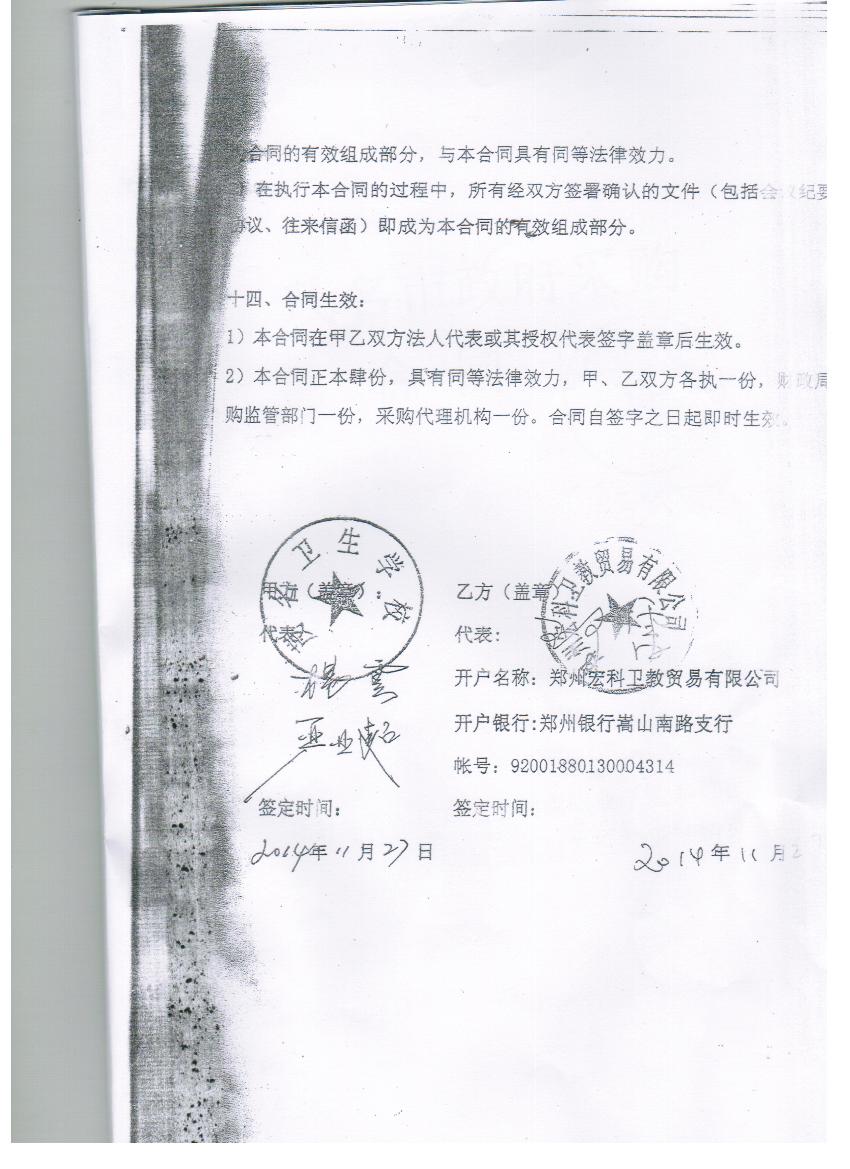 合同的有效组成部分，与本合同具有同等法律效力。
在执行本合同的过程中，所有经双方签署确认的文件（包括会议纪要
协议、往来信函）即成为本合同的有效组成部分。
十四、合同生效：
1）本合同在甲乙双方法人代表或其授权代表签字盖章后生效。
2）本合同正本肆份，具有同等法律效力，甲、乙双方各执一份，财政局
购监管部门一份，采购代理机构一份。合同自签字之日起即时生效。
卫生学校
甲方（盖章）：
乙方（盖章
科卫教贸易有限公司
代表
代表：
杨云
开户名称：郑州宏科卫教贸易有限公司
开户银行:郑州银行嵩山南路支行
帐号：92001880130004314
签定时间：
签定时间：
2014年11月27日
2014年11月2